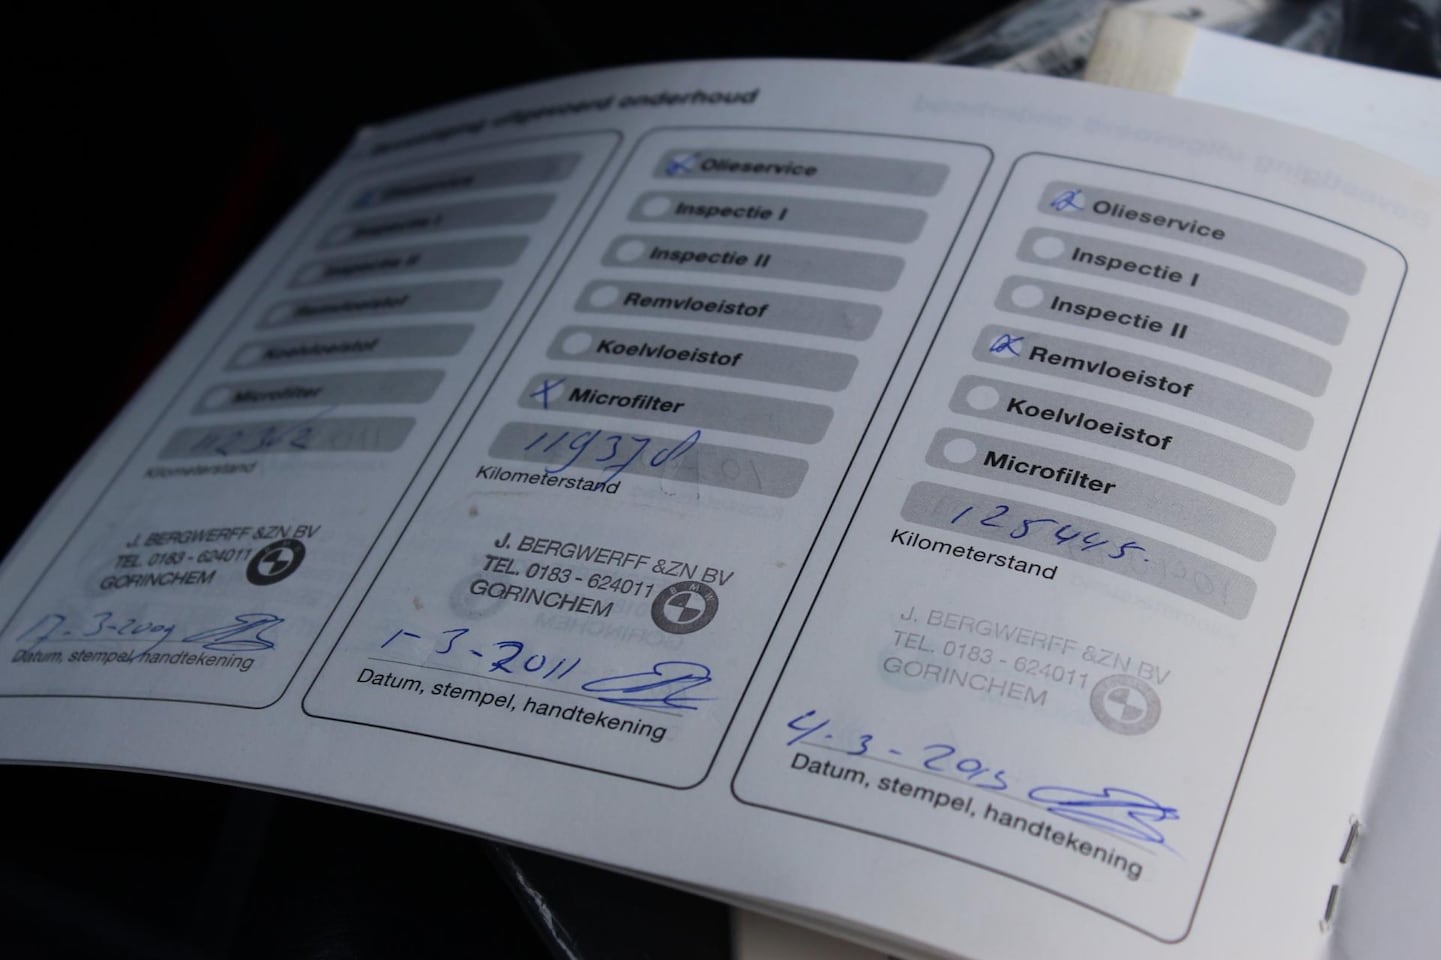 Bevestiging uitgevoerd onderhoud
Olieservice
Inspectie I
Inspectie II
Remvloeistof
Koelvloeistof
Microfilter
112362
Kilometerstand
J. BERGWERFF &ZN BV
TEL. 0183 - 624011
GORINCHEM
17-3-2009
Datum, stempel, handtekening
Olieservice
Inspectie I
Inspectie II
Remvloeistof
Koelvloeistof
Microfilter
119378
Kilometerstand
J. BERGWERFF &ZN BV
TEL. 0183 - 624011
GORINCHEM
BMW
1-3-2011
Datum, stempel, handtekening
Olieservice
Inspectie I
Inspectie II
Remvloeistof
Koelvloeistof
Microfilter
125445.
Kilometerstand
J. BERGWERFF &ZN BV
TEL. 0183 - 624011
GORINCHEM
4-3-2013
Datum, stempel, handtekening